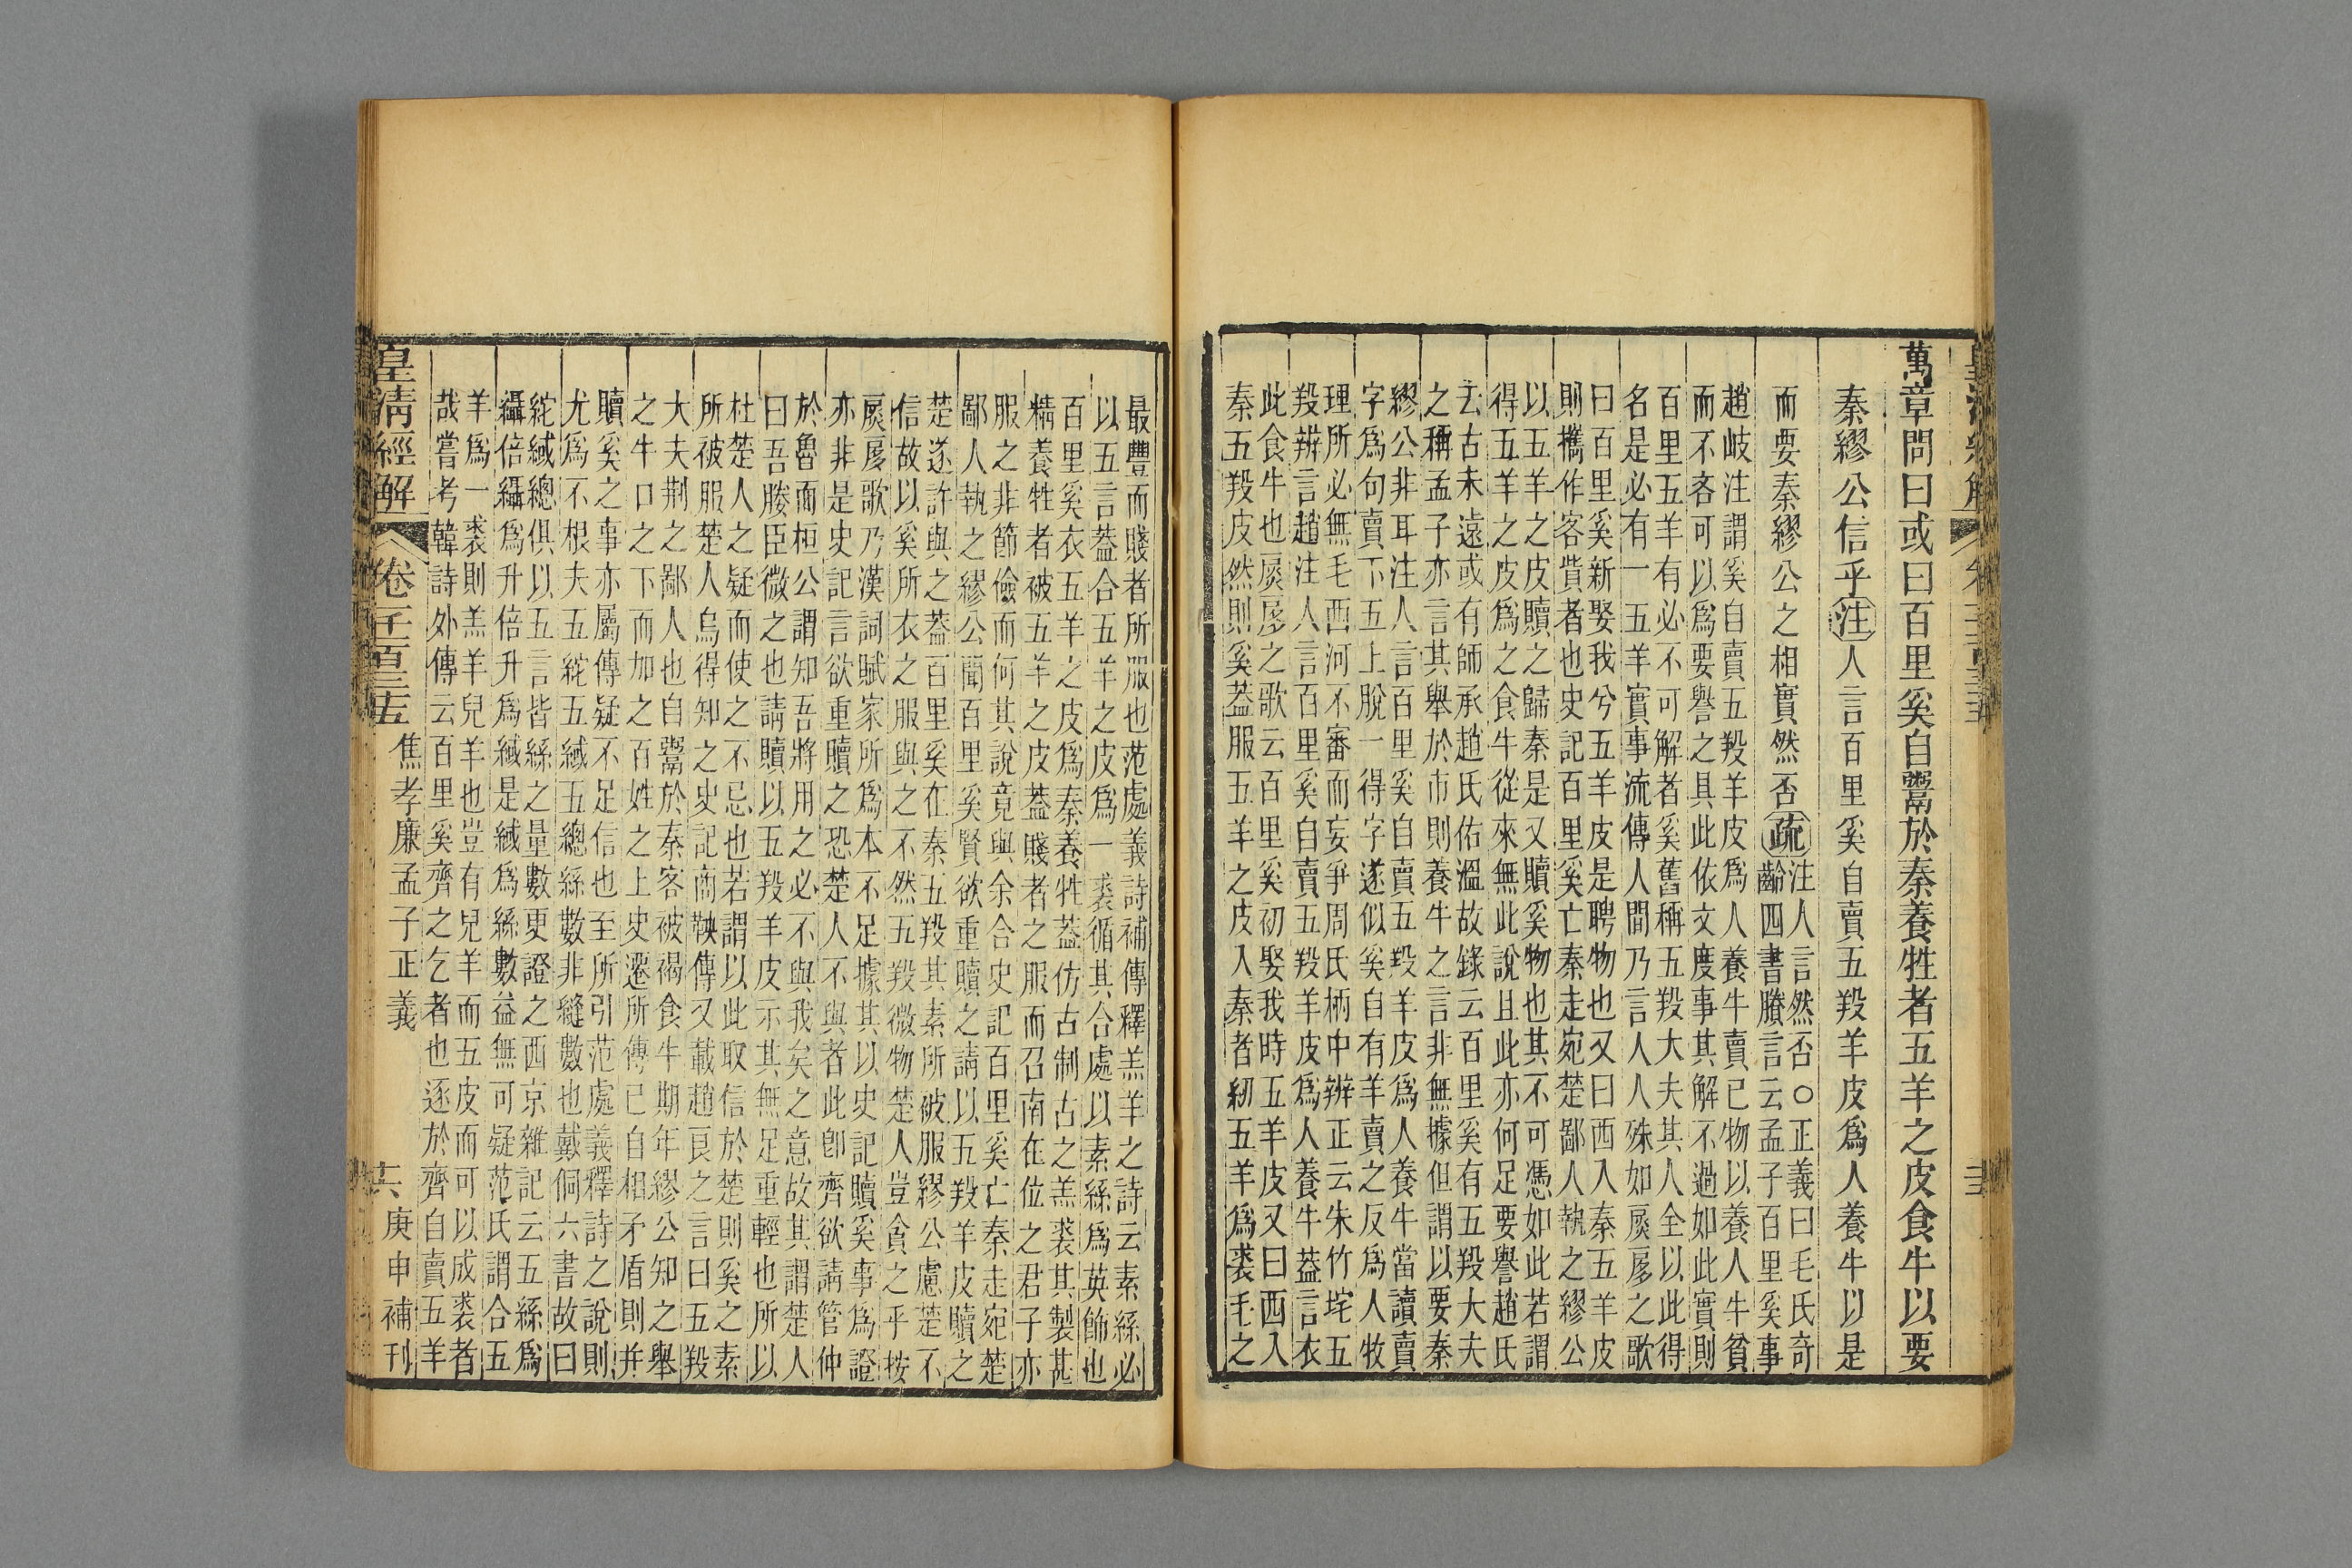 萬章問曰或曰百里奚自鬻於秦養牲者五羊之皮食牛以要
秦繆公信乎注人言百里奚自賣五羖羊皮爲人養牛以是
而要秦繆公之相實然否疏
注人言然否○正義曰毛氏奇
齡四書賸言云孟子百里奚事
趙岐注謂奚自賣五羖羊皮爲人養牛賣已物以養人牛貧
而不吝可以爲要譽之具此依文度事其解不過如此實則
百里五羊有必不可解者奚舊稱五羖大夫其人全以此得
名是必有一五羊實事流傳人間乃言人人殊如扊扅之歌
曰百里奚新娶我兮五羊皮是聘物也又曰西入秦五羊皮
則攜作客貲者也史記百里奚亡秦走宛楚鄙人執之繆公
以五羊之皮贖之歸秦是又贖奚物也其不可憑如此若謂
得五羊之皮爲之食牛從來無此說且此亦何足要譽趙氏
去古未遠或有師承趙氏佑溫故錄云百里奚有五羖大夫
之稱孟子亦言其舉於市則養牛之言非無據但謂以要秦
繆公非耳注人言百里奚自賣五羖羊皮爲人養牛當讀賣
字爲句賣下五上脫一得字遂似奚自有羊賣之反爲人牧
理所必無毛西河不審而妄爭周氏柄中辨正云朱竹垞五
羖辨言趙注人言百里奚自賣五羖羊皮爲人養牛蓋言衣
此食牛也扊扅之歌云百里奚初娶我時五羊皮又曰西入
秦五羖皮然則奚蓋服五羊之皮入秦者紉五羊爲裘毛之
最豐而賤者所服也范處義詩補傳釋羔羊之詩云素絲必
以五言蓋合五羊之皮爲一裘循其合處以素絲爲英飾也
百里奚衣五羊之皮爲秦養牲蓋仿古制古之羔裘其製甚
精養牲者被五羊之皮蓋賤者之服而召南在位之君子亦
服之非節儉而何其說竟與余合史記百里奚亡秦走宛楚
鄙人執之繆公聞百里奚賢欲重贖之請以五羖羊皮贖之
楚遂許與之蓋百里奚在秦五羖其素所被服繆公慮楚不
信故以奚所衣之服與之不然五羖微物楚人豈貪之乎按
扊扅歌乃漢詞賦家所爲本不足據其以史記贖奚事爲證
亦非是史記言欲重贖之恐楚人不與者此卽齊欲請管仲
於魯而桓公謂知吾將用之必不與我矣之意故其謂楚人
曰吾媵臣微之也請贖以五羖羊皮示其無足重輕也所以
杜楚人之疑而使之不忌也若謂以此取信於楚則奚之素
所被服楚人烏得知之史記商鞅傳又載趙良之言曰五羖
大夫荆之鄙人也自鬻於秦客被褐食牛期年繆公知之舉
之牛口之下而加之百姓之上史遷所傳已自相矛盾則并
贖奚之事亦屬傳疑不足信也至所引范處義釋詩之說則
尤爲不根夫五紽五緎五總絲數非縫數也戴侗六書故曰
紽緎總俱以五言皆絲之量數更證之西京雜記云五絲爲
䌰倍䌰爲升倍升爲緎是緎爲絲數益無可疑范氏謂合五
羊爲一裘則羔羊兒羊也豈有兒羊而五皮而可以成裘者
哉嘗考韓詩外傳云百里奚齊之乞者也逐於齊自賣五羊
皇清經解
焦孝廉孟子正義
庚申補刊